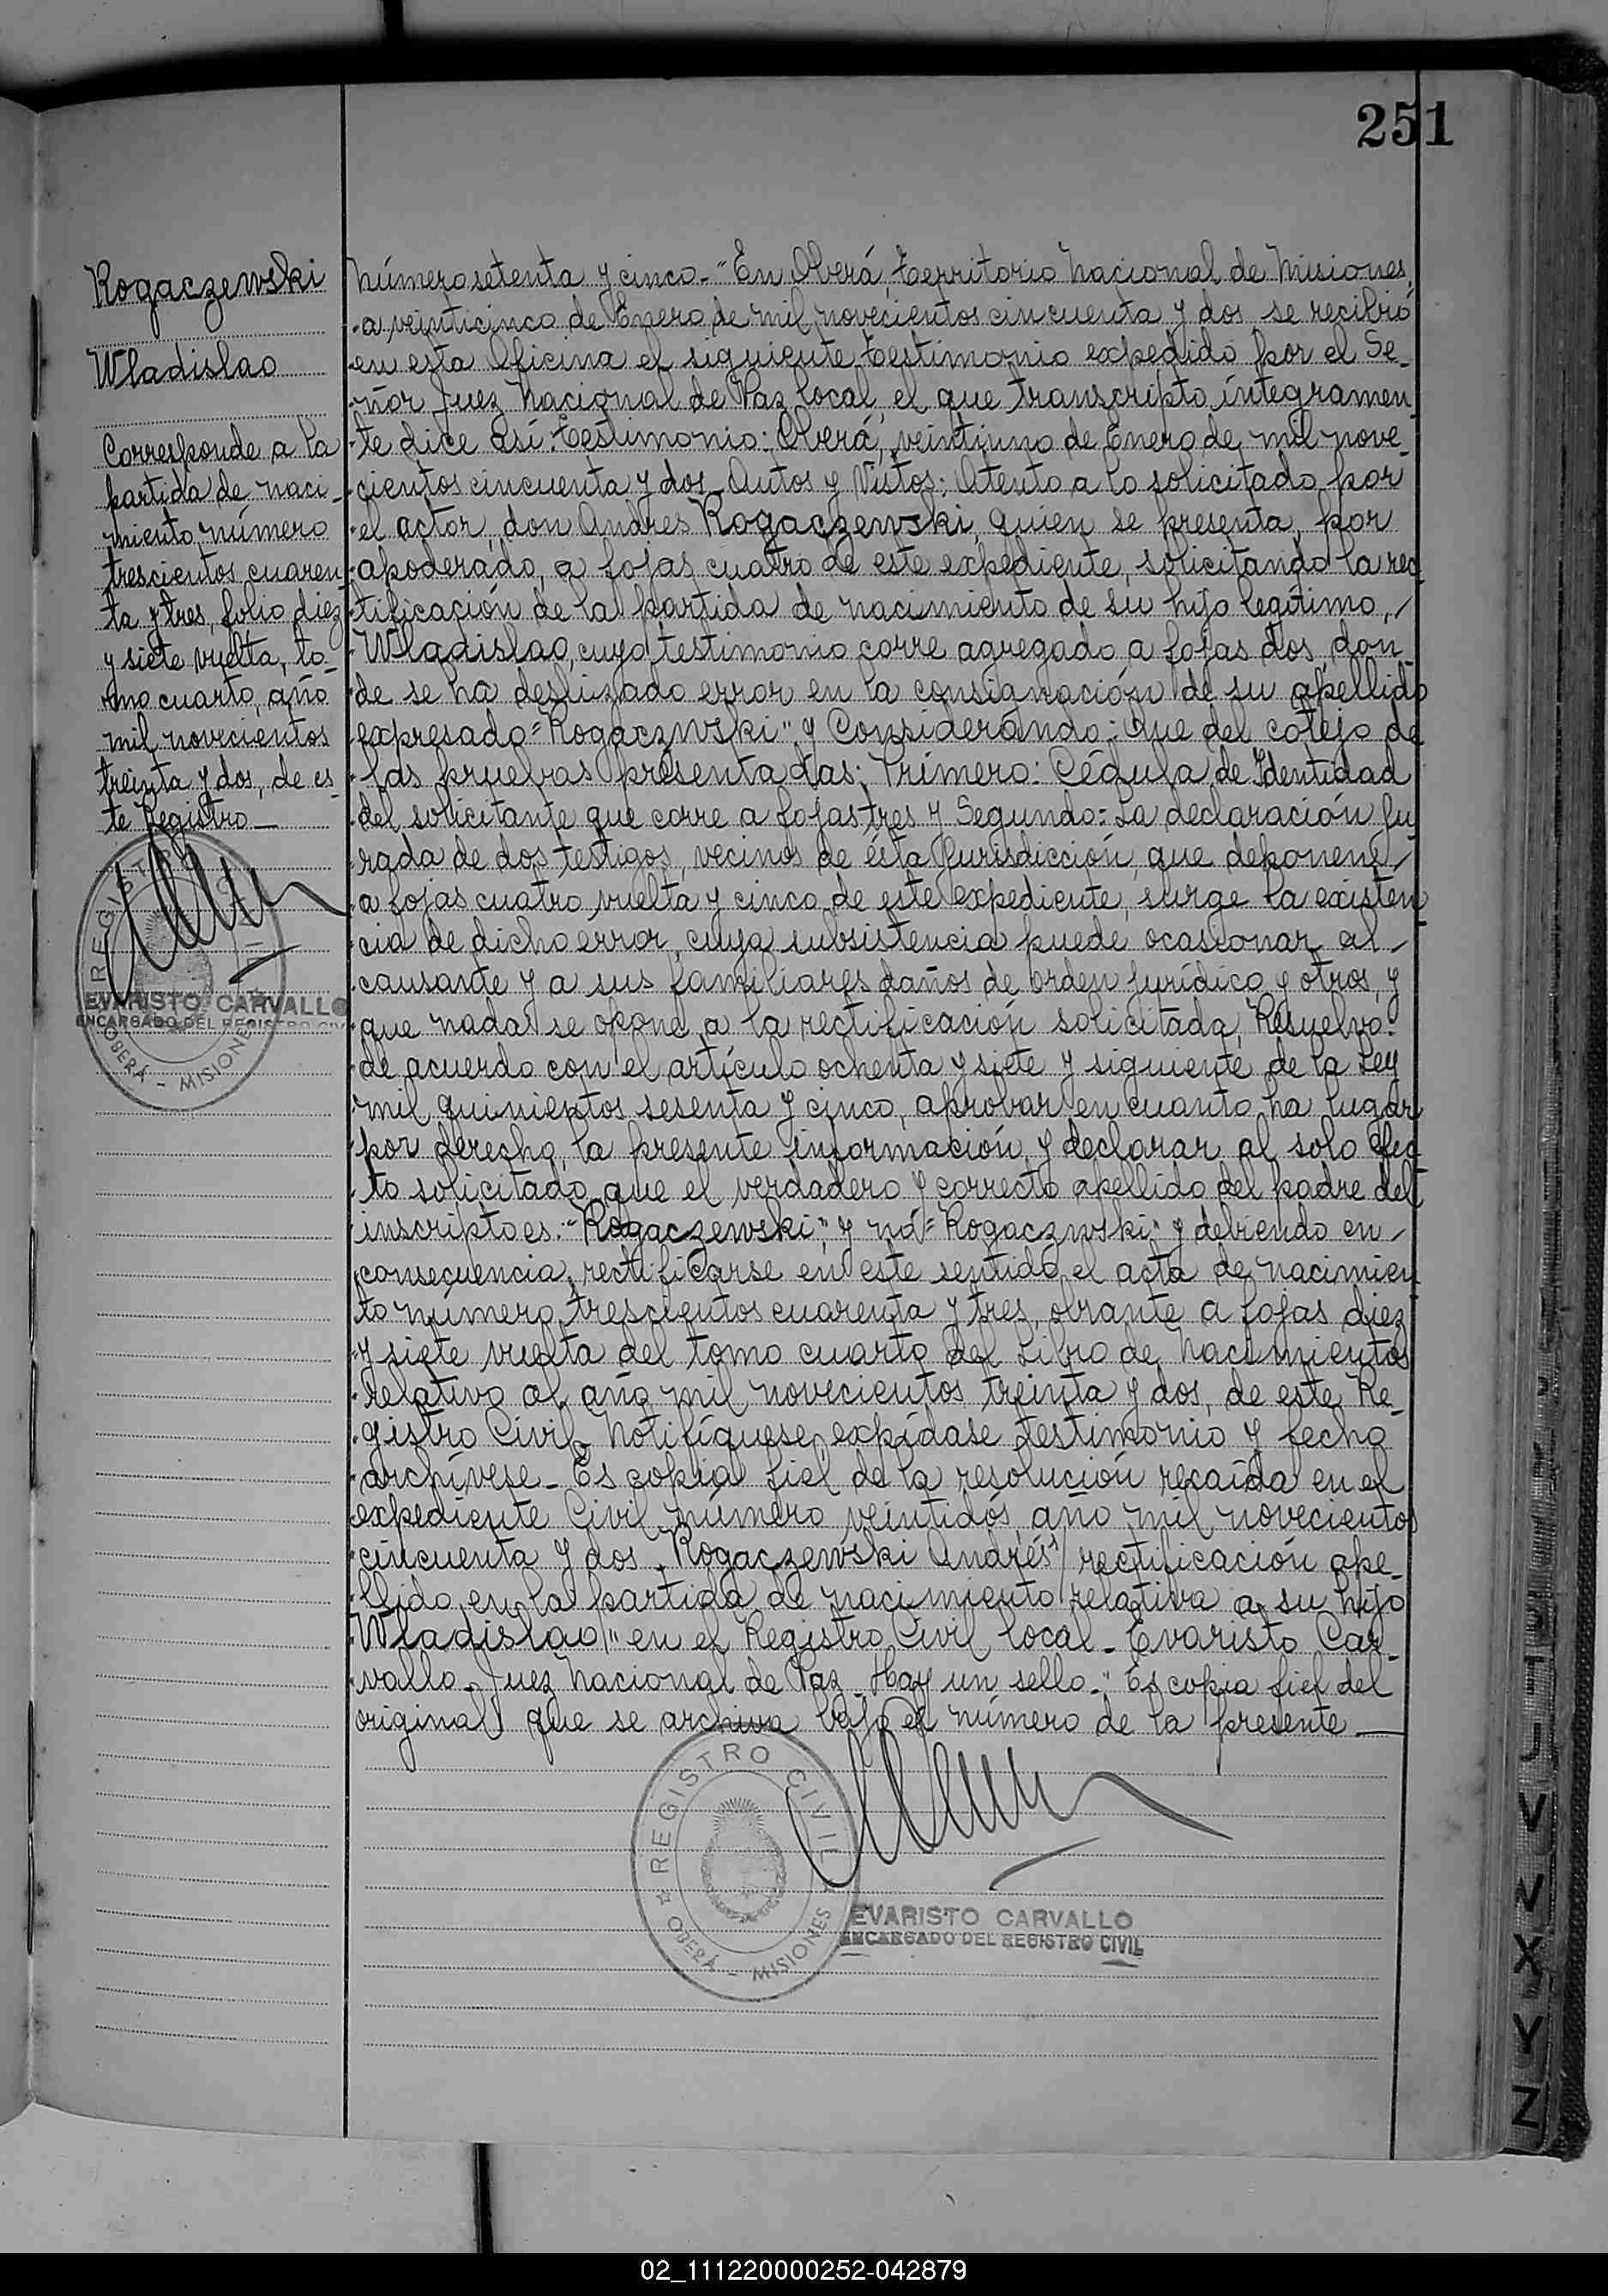 251
Rogaczewski
Wladislao
Corresponde a la
partida de naci-
miento número
trescientos cuaren-
ta y tres, folio diez
y siete vuelta, to-
mo cuarto, año
mil novecientos
treinta y dos, de es-
te Registro
REGISTRO CIVIL
EVARISTO CARVALLO
ENCARGADO DEL REGISTRO CIV
OBERÁ - MISIONES
Número setenta y cinco.- "En Oberá, Territorio Nacional de Misiones,
a veinticinco de Enero de mil novecientos cincuenta y dos se recibió
en esta Oficina el siguiente testimonio expedido por el Se-
ñor Juez Nacional de Paz local, el que transcripto íntegramen-
te dice así: Testimonio: Oberá, veintiuno de Enero de mil nove-
cientos cincuenta y dos.- Autos y Vistos; Atento a lo solicitado por
el actor, don Andres Rogaczewski, quien se presenta, por
apoderado, a fojas cuatro de este expediente, solicitando la rec-
tificación de la partida de nacimiento de su hijo legítimo,
Wladislao, cuyo testimonio corre agregado a fojas dos, don-
de se ha deslizado error en la consignación de su apellido
expresado="Rogaczwski" y Considerando: Que del cotejo de
las pruebas presentadas; Primero: Cédula de Identidad
del solicitante que corre a fojas tres y Segundo: La declaración ju-
rada de dos testigos, vecinos de ésta Jurisdicción, que deponen
a fojas cuatro vuelta y cinco de este expediente, surge la existen-
cia de dicho error, cuya subsistencia puede ocasionar al
causante y a sus familiares daños de orden jurídico y otros, y
que nada se opone a la rectificación solicitada, Resuelvo:
de acuerdo con el artículo ochenta y siete y siguiente de la Ley
mil quinientos sesenta y cinco, aprobar en cuanto ha lugar
por derecho, la presente información, y declarar al solo efec-
to solicitado, que el verdadero y correcto apellido del padre del
inscripto es: "Rogaczewski", y no="Rogaczwski" y debiendo en
consecuencia, rectificarse en este sentido el acta de nacimien-
to número trescientos cuarenta y tres, obrante a fojas diez
y siete vuelta del tomo cuarto del Libro de Nacimientos
relativo al año mil novecientos treinta y dos, de este Re-
gistro Civil. Notifíquese, expídase testimonio y fecho
archívese.- Es copia fiel de la resolución recaída en el
expediente Civil número veintidós, año mil novecientos
cincuenta y dos. Rogaczewski Andrés s/ rectificación ape-
llido en la partida de nacimiento relativa a su hijo
Wladislao," en el Registro Civil local.- Evaristo Car-
vallo. Juez Nacional de Paz. Hay un sello.-" Es copia fiel del
original que se archiva bajo el número de la presente.
REGISTRO CIVIL
OBERÁ - MISIONES
EVARISTO CARVALLO
ENCARGADO DEL REGISTRO CIVIL
V
X
Y
Z
02_111220000252-042879